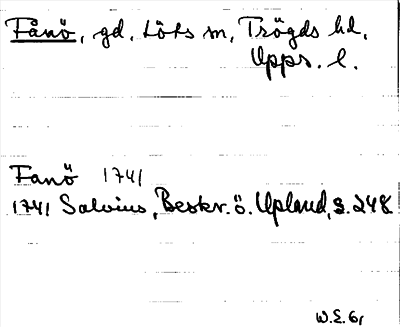 Fånö, gd, Löts sn, Trögds hd,
Upps. l.
Fanö 1741
1741 Salvius, Beskr. ö. Upland, s. 248
W.E. 61